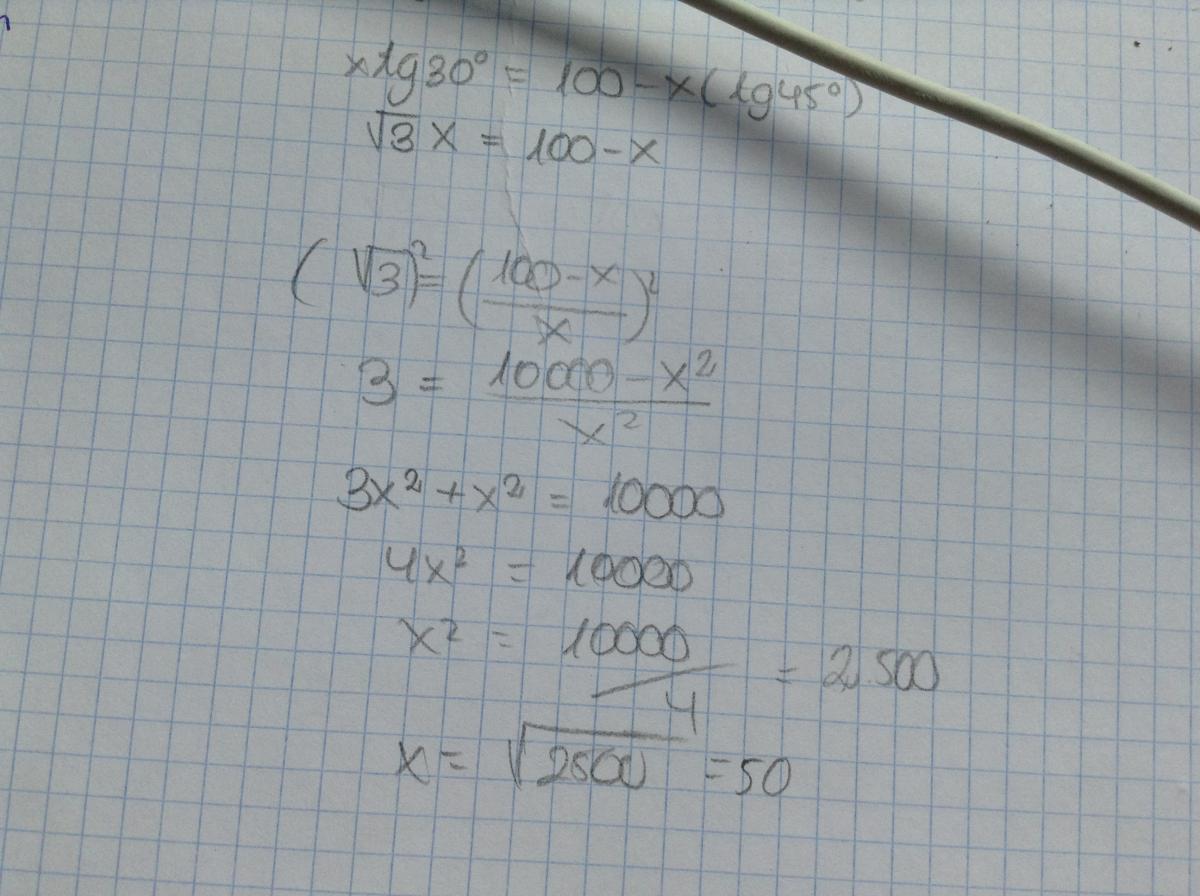 x tg30° = 100 - x(tg45°)
√3 x = 100 - x
(√3)² = ((100 - x)/x)²
3 = (10000 - x²)/x²
3x² + x² = 10000
4x² = 10000
x² = 10000/4 = 2.500
x = √2500 = 50